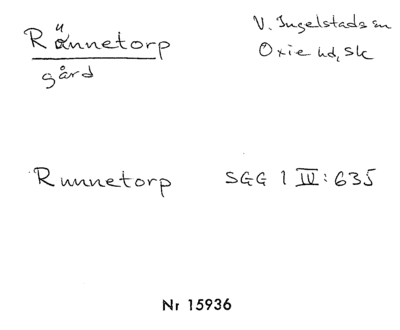 Rünnetorp
gård
V. Ingelstads sn
Oxie hd, Sk
Runnetorp SGG 1 IV: 635
Nr 15936